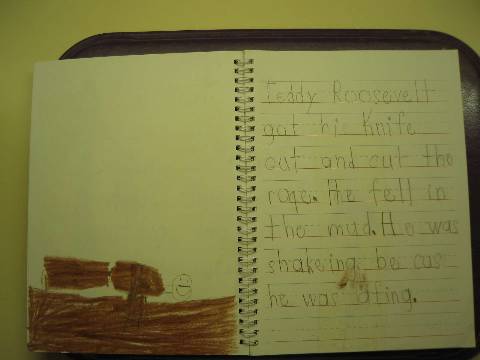 Teddy Roosevelt
got hi Knife
out and cut the
rope. He fell in
the mud. He was
shakering be cus
he was